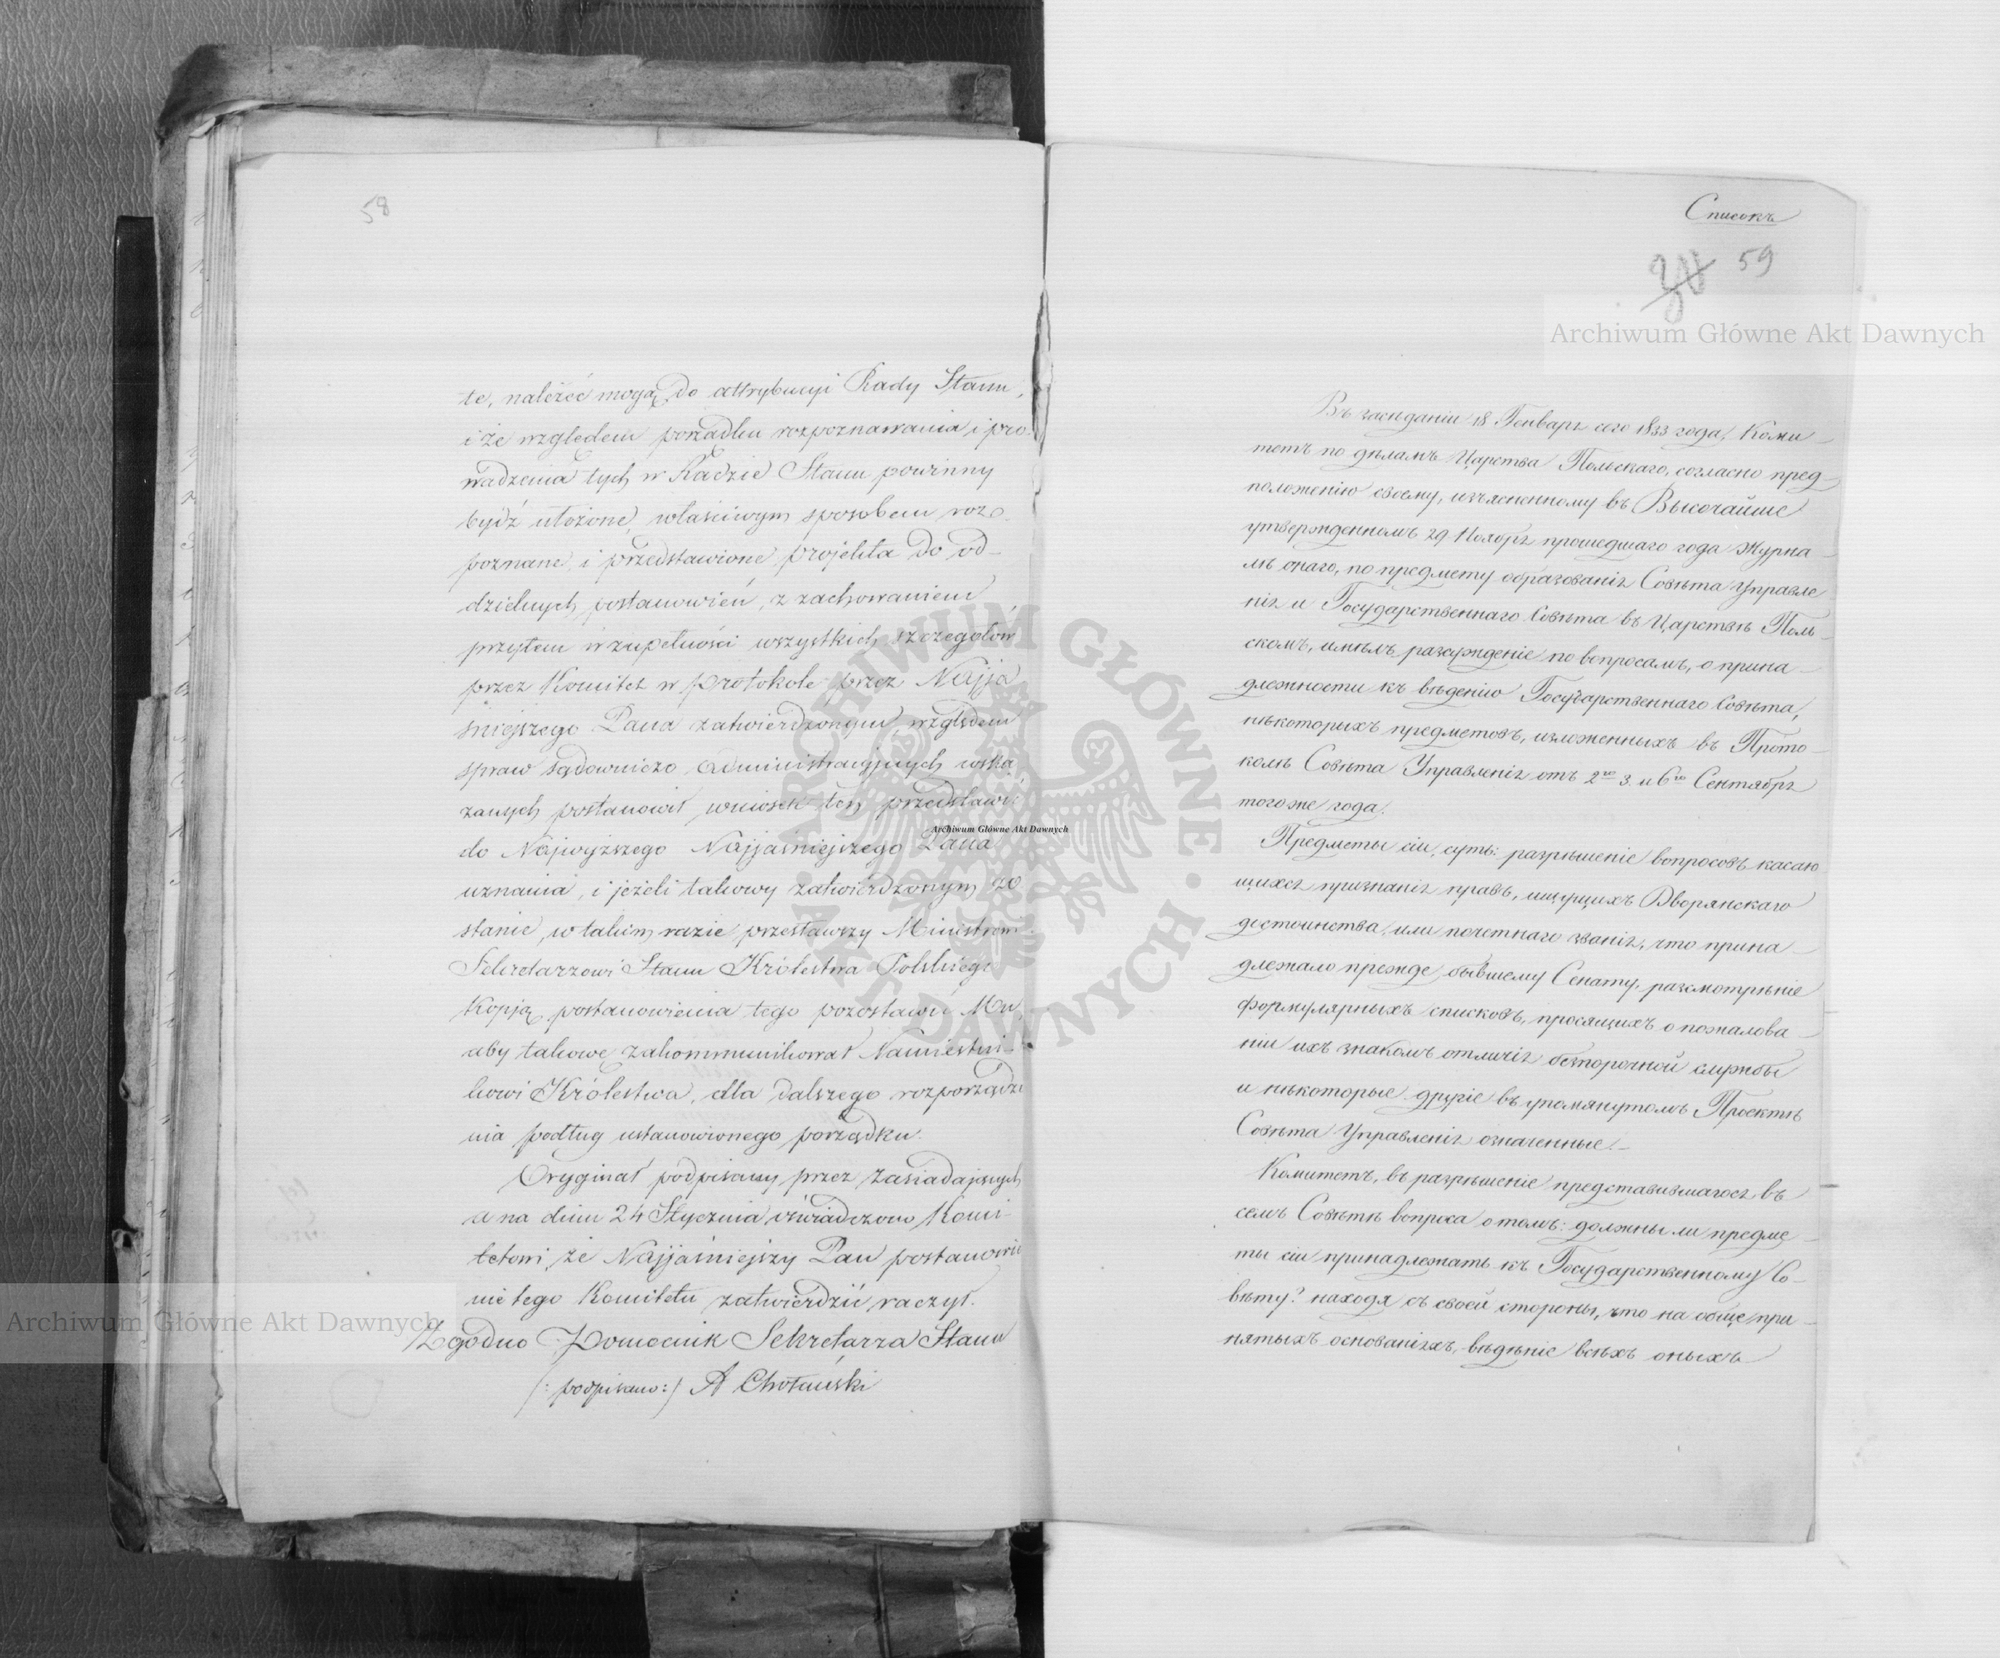 58
te, należeć mogą do attrybucyi Rady Stanu,
i że względem porządku rozpoznawania i pro-
wadzenia tych w Radzie Stanu powinny
bydź ułożone, właściwym sposobem roz-
poznane, i przedstawione, projekta do od-
dzielnych postanowień, z zachowaniem
przytem w zupełności wszystkich szczegółów
przez Komitet w protokole przez Najja
śniejszego Pana zatwierdzonym, względem
spraw sądowniczo administracyjnych wska
zanych postanowił wniosek ten przedstawić
do Najwyższego Najjaśniejszego Pana
uznania, i jeżeli takowy zatwierdzonym zo
stanie, w takim razie przesławszy Ministrowi
Sekretarzowi Stanu Królestwa Polskiego
Kopją postanowienia tego pozostawić Mu,
aby takowe zakommunikował Namiestni-
kowi Królestwa, dla dalszego rozporządze
nia podług ustanowionego porządku.
Oryginał podpisany przez Zasiadających
a na dniu 24 Stycznia oświadczono Komi-
tetowi, że Najjaśniejszy Pan postanowie
nie tego Komitetu zatwierdzić raczył.
Zgodno Pomocnik Sekretarza Stanu
/: podpisano :/ A Chotański
Списокъ
59
Въ засѣданіи 18 Генваря сего 1833 года, Коми-
тетъ по дѣламъ Царства Польскаго, согласно пред-
положенію своему, изъясненному въ Высочайше
утвержденномъ 29 Ноября прошедшаго года Журна-
лѣ онаго, по предмету образованія Совѣта Управле
нія и Государственнаго Совѣта въ Царствѣ Поль-
скомъ, имѣлъ разсужденіе по вопросамъ, о прина-
длежности къ вѣденію Государственнаго Совѣта,
нѣкоторыхъ предметовъ, изложенныхъ въ Прото-
колѣ Совѣта Управленія отъ 2го 3 и 6го Сентября
тогоже года.
Предметы сіи, суть: разрѣшеніе вопросовъ касаю
щихся признанія правъ, ищущихъ Дворянскаго
достоинства, или почетнаго званія, что прина-
длежало прежде бывшему Сенату, разсмотрѣніе
формулярныхъ списковъ, просящихъ о пожалова-
ніи ихъ знакомъ отличія безпорочной службы
и нѣкоторые другіе въ упомянутомъ Проектѣ
Совѣта Управленія означенные.-
Комитетъ, въ разрѣшеніе представившагося въ
семъ Совѣтѣ вопроса о томъ: должны ли предме-
ты сіи принадлежать къ Государственному Со-
вѣту? находя съ своей стороны, что на общепри-
нятыхъ основаніяхъ, вѣдѣніе всѣхъ оныхъ
Archiwum Główne Akt Dawnych
Archiwum Główne Akt Dawnych
Archiwum Główne Akt Dawnych
ARCHIWUM GŁÓWNE · AKT DAWNYCH ·